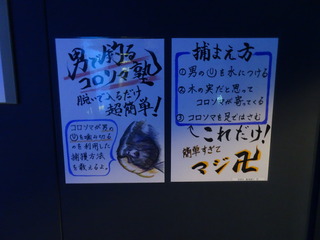 男で釣る
コロソマ塾
脱いで入るだけ
超簡単!
コロソマが男の
を噛み切る
を利用した
捕獲方法
を教えるよ。
捕まえ方
①男の を水につける
②木の実だと思って
コロソマが寄ってくる
③コロソマを足ではさむ
これだけ!
簡単すぎて
マジ卍